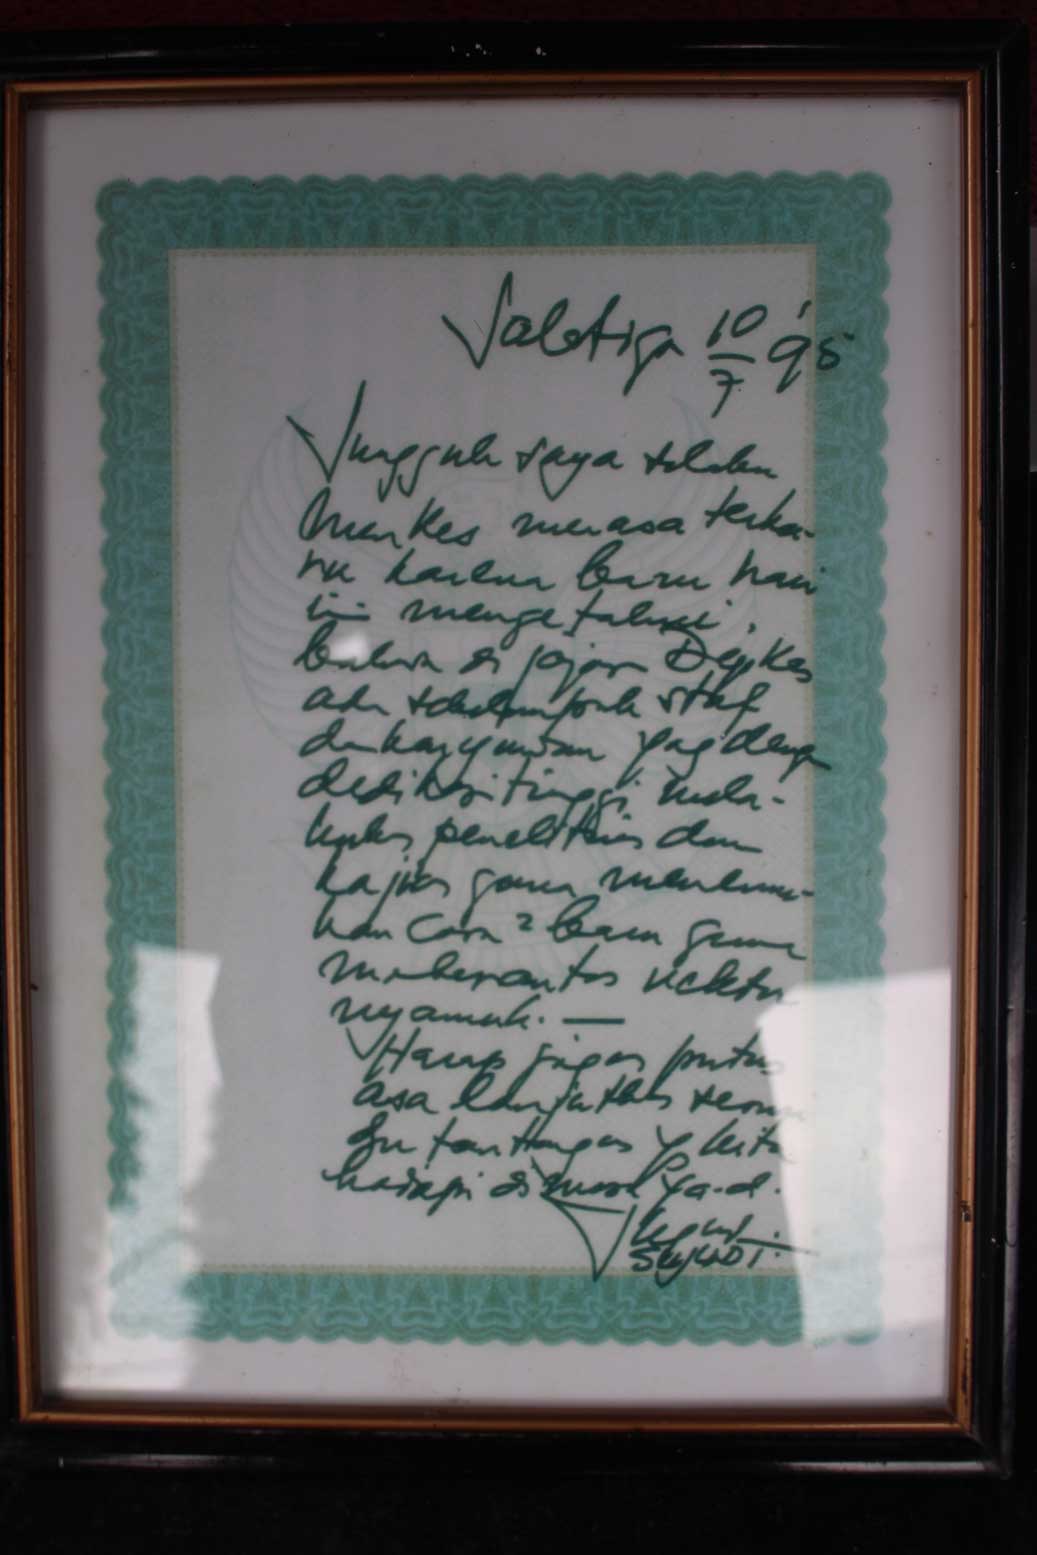 Salatiga 10/7 '95
Sungguh saya selaku
Menkes merasa terha-
ru karena baru hari
ini mengetahui,
bahwa di jajaran DepKes
ada sekelompok staf
dan karyawan yag dengan
dedikasi tinggi mela-
kukan penelitian dan
kajian guna menemu-
kan cara² baru guna
memberantas vektor
nyamuk. —
Harap jigan putus
asa lanjutkan terus
dan tantangan y kita
hadapi di masa ya.d.
SUJUDI.